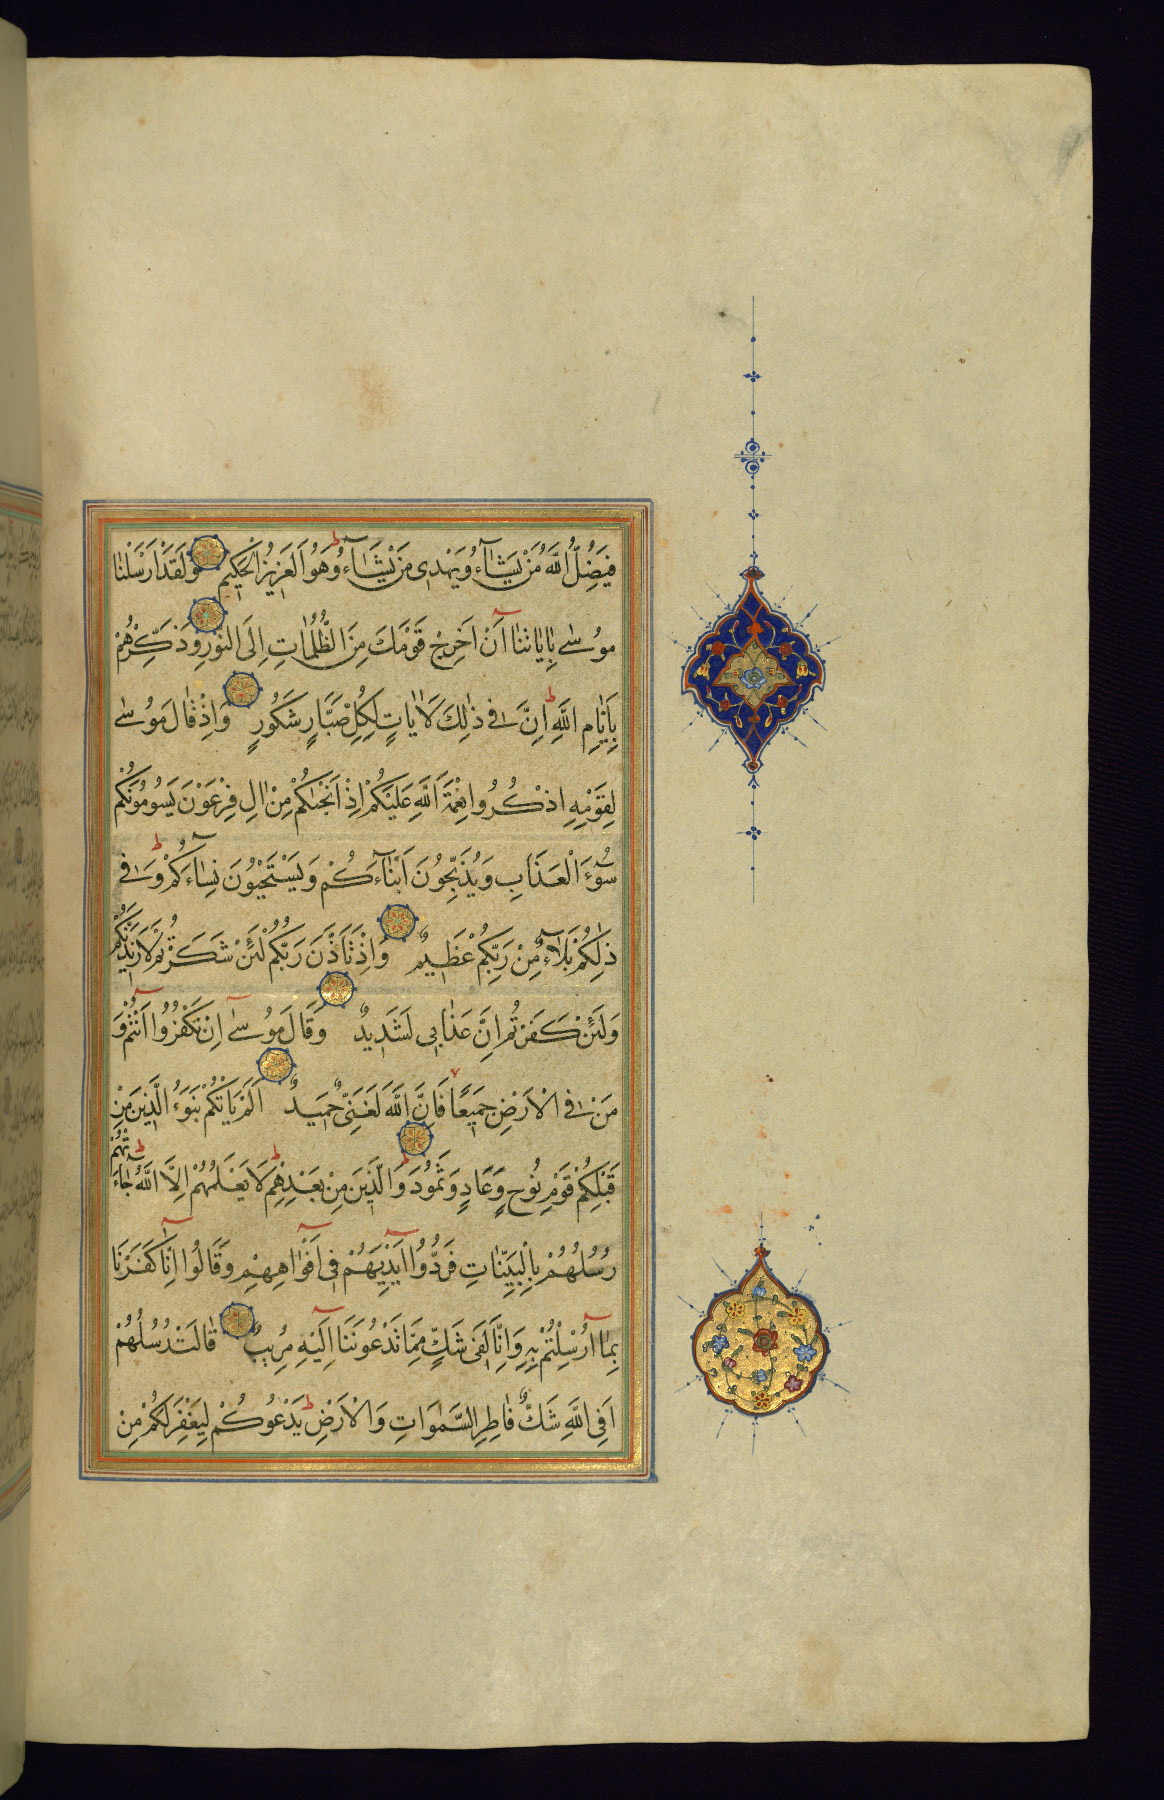 فَيُضِلُّ اللّٰهُ مَنْ يَشَٓاءُ وَيَهْدِى مَنْ يَشَٓاءُ وَهُوَ الْعَزِيزُ الْحَكِيمُ وَلَقَدْ اَرْسَلْنَا
مُوسٰى بِاٰيَاتِنَٓا اَنْ اَخْرِجْ قَوْمَكَ مِنَ الظُّلُمَاتِ اِلَى النُّورِ وَذَكِّرْهُمْ
بِاَيَّامِ اللّٰهِ اِنَّ فِى ذٰلِكَ لَاٰيَاتٍ لِكُلِّ صَبَّارٍ شَكُورٍ وَاِذْ قَالَ مُوسٰى
لِقَوْمِهِ اذْكُرُوا نِعْمَةَ اللّٰهِ عَلَيْكُمْ اِذْ اَنْجٰىكُمْ مِنْ اٰلِ فِرْعَوْنَ يَسُومُونَكُمْ
سُٓوءَ الْعَذَابِ وَيُذَبِّحُونَ اَبْنَٓاءَكُمْ وَيَسْتَحْيُونَ نِسَٓاءَكُمْ وَفِى
ذٰلِكُمْ بَلَٓاءٌ مِنْ رَبِّكُمْ عَظِيمٌ وَاِذْ تَاَذَّنَ رَبُّكُمْ لَئِنْ شَكَرْتُمْ لَاَزِيدَنَّكُمْ
وَلَئِنْ كَفَرْتُمْ اِنَّ عَذَابِى لَشَدِيدٌ وَقَالَ مُوسٰٓى اِنْ تَكْفُرُٓوا اَنْتُمْ وَ
مَنْ فِى الْاَرْضِ جَمِيعًا فَاِنَّ اللّٰهَ لَغَنِىٌّ حَمِيدٌ اَلَمْ يَاْتِكُمْ نَبَؤُا الَّذِينَ مِنْ
قَبْلِكُمْ قَوْمِ نُوحٍ وَعَادٍ وَثَمُودَ وَالَّذِينَ مِنْ بَعْدِهِمْ لَا يَعْلَمُهُمْ اِلَّا اللّٰهُ جَٓاءَتْهُمْ
رُسُلُهُمْ بِالْبَيِّنَاتِ فَرَدُّٓوا اَيْدِيَهُمْ فِٓى اَفْوَاهِهِمْ وَقَالُٓوا اِنَّا كَفَرْنَا
بِمَٓا اُرْسِلْتُمْ بِهِ وَاِنَّا لَفِى شَكٍّ مِمَّا تَدْعُونَنَٓا اِلَيْهِ مُرِيبٍ قَالَتْ رُسُلُهُمْ
اَفِى اللّٰهِ شَكٌّ فَاطِرِ السَّمٰوَاتِ وَالْاَرْضِ يَدْعُوكُمْ لِيَغْفِرَ لَكُمْ مِنْ